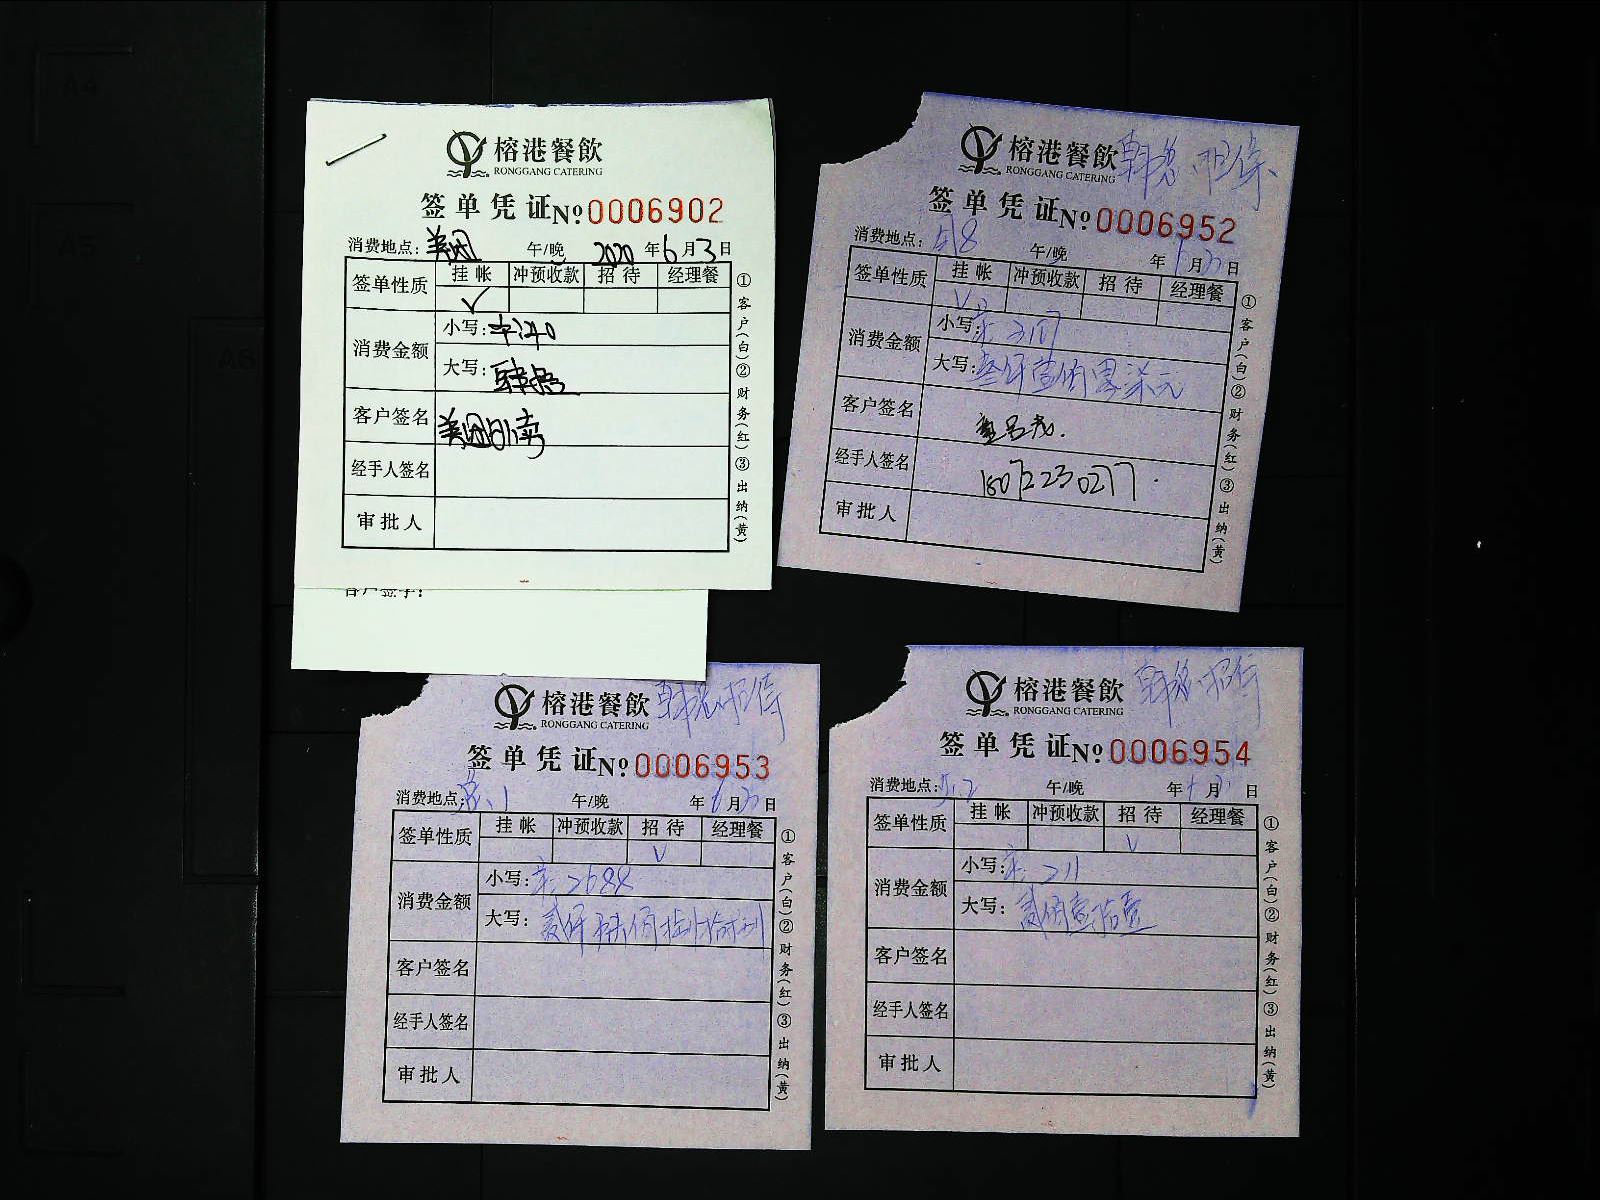 榕港餐飲
RONGGANG CATERING
签单凭证 No 0006902
消费地点：美团 午/晚 2020年6月3日
签单性质 挂帐 冲预收款 招待 经理餐
√
消费金额 小写：
大写：
客户签名 美团外卖
经手人签名
审批人
①客户(白)②财务(红)③出纳(黄)
客户签字：
榕港餐飲 韩总招待
RONGGANG CATERING
签单凭证 No 0006952
消费地点：518 午/晚 年6月3日
签单性质 挂帐 冲预收款 招待 经理餐
√
消费金额 小写：3107
大写：叁仟壹佰零柒元
客户签名
经手人签名
审批人
①客户(白)②财务(红)③出纳(黄)
榕港餐飲 韩总招待
RONGGANG CATERING
签单凭证 No 0006953
消费地点： 午/晚 年6月3日
签单性质 挂帐 冲预收款 招待 经理餐
√
消费金额 小写：2688
大写：贰仟陆佰捌拾捌
客户签名
经手人签名
审批人
①客户(白)②财务(红)③出纳(黄)
榕港餐飲 韩总招待
RONGGANG CATERING
签单凭证 No 0006954
消费地点： 午/晚 年 月 日
签单性质 挂帐 冲预收款 招待 经理餐
√
消费金额 小写：211
大写：贰佰壹拾壹
客户签名
经手人签名
审批人
①客户(白)②财务(红)③出纳(黄)